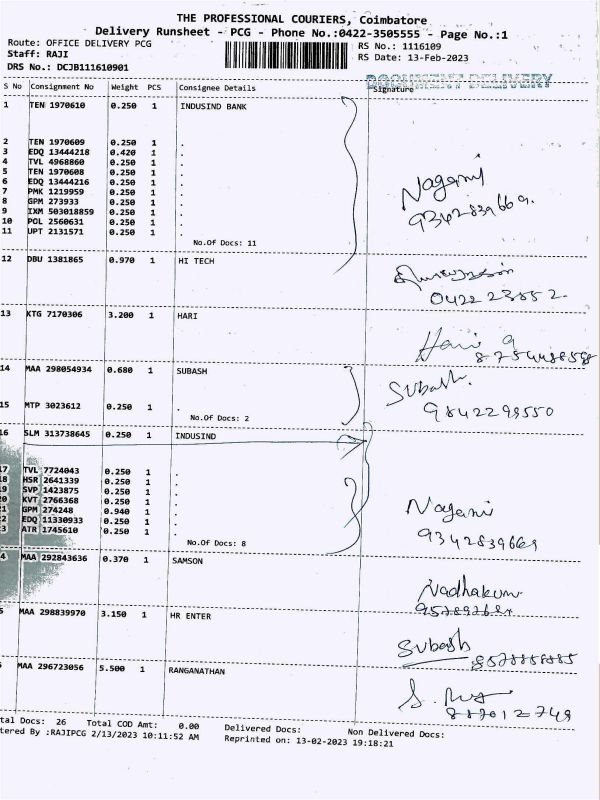 THE PROFESSIONAL COURIERS, Coimbatore
Delivery Runsheet - PCG - Phone No.:0422-3505555 - Page No.:1
Route: OFFICE DELIVERY PCG RS No.: 1116109
Staff: RAJI RS Date: 13-Feb-2023
DRS No.: DCJB111610901
DOCUMENT DELIVERY
S No Consignment No Weight PCS Consignee Details Signature
1 TEN 1970610 0.250 1 INDUSIND BANK
2 TEN 1970609 0.250 1 .
3 EDQ 13444218 0.420 1 .
4 TVL 4968860 0.250 1 .
5 TEN 1970608 0.250 1 .
6 EDQ 13444216 0.250 1 .
7 PMK 1219959 0.250 1 .
8 GPM 273933 0.250 1 .
9 IXM 503018859 0.250 1 .
10 POL 2560631 0.250 1 .
11 UPT 2131571 0.250 1 .
No.Of Docs: 11
Nagami
9342839669.
12 DBU 1381865 0.970 1 HI TECH
13 KTG 7170306 3.200 1 HARI
Hari
14 MAA 298054934 0.680 1 SUBASH
Subash.
15 MTP 3023612 0.250 1 .
9842298550
No.Of Docs: 2
16 SLM 313738645 0.250 1 INDUSIND
17 TVL 7724043 0.250 1 .
18 HSR 2641339 0.250 1 .
19 SVP 1423875 0.250 1 .
20 KVT 2766368 0.250 1 .
21 GPM 274248 0.940 1 .
22 EDQ 11330933 0.250 1 .
23 ATR 1745610 0.250 1 .
No.Of Docs: 8
Nagami
9342839669
4 MAA 292843636 0.370 1 SAMSON
5 MAA 298839970 3.150 1 HR ENTER
Subash
MAA 296723056 5.500 1 RANGANATHAN
tal Docs: 26 Total COD Amt: 0.00 Delivered Docs: Non Delivered Docs:
tered By :RAJIPCG 2/13/2023 10:11:52 AM Reprinted on: 13-02-2023 19:18:21